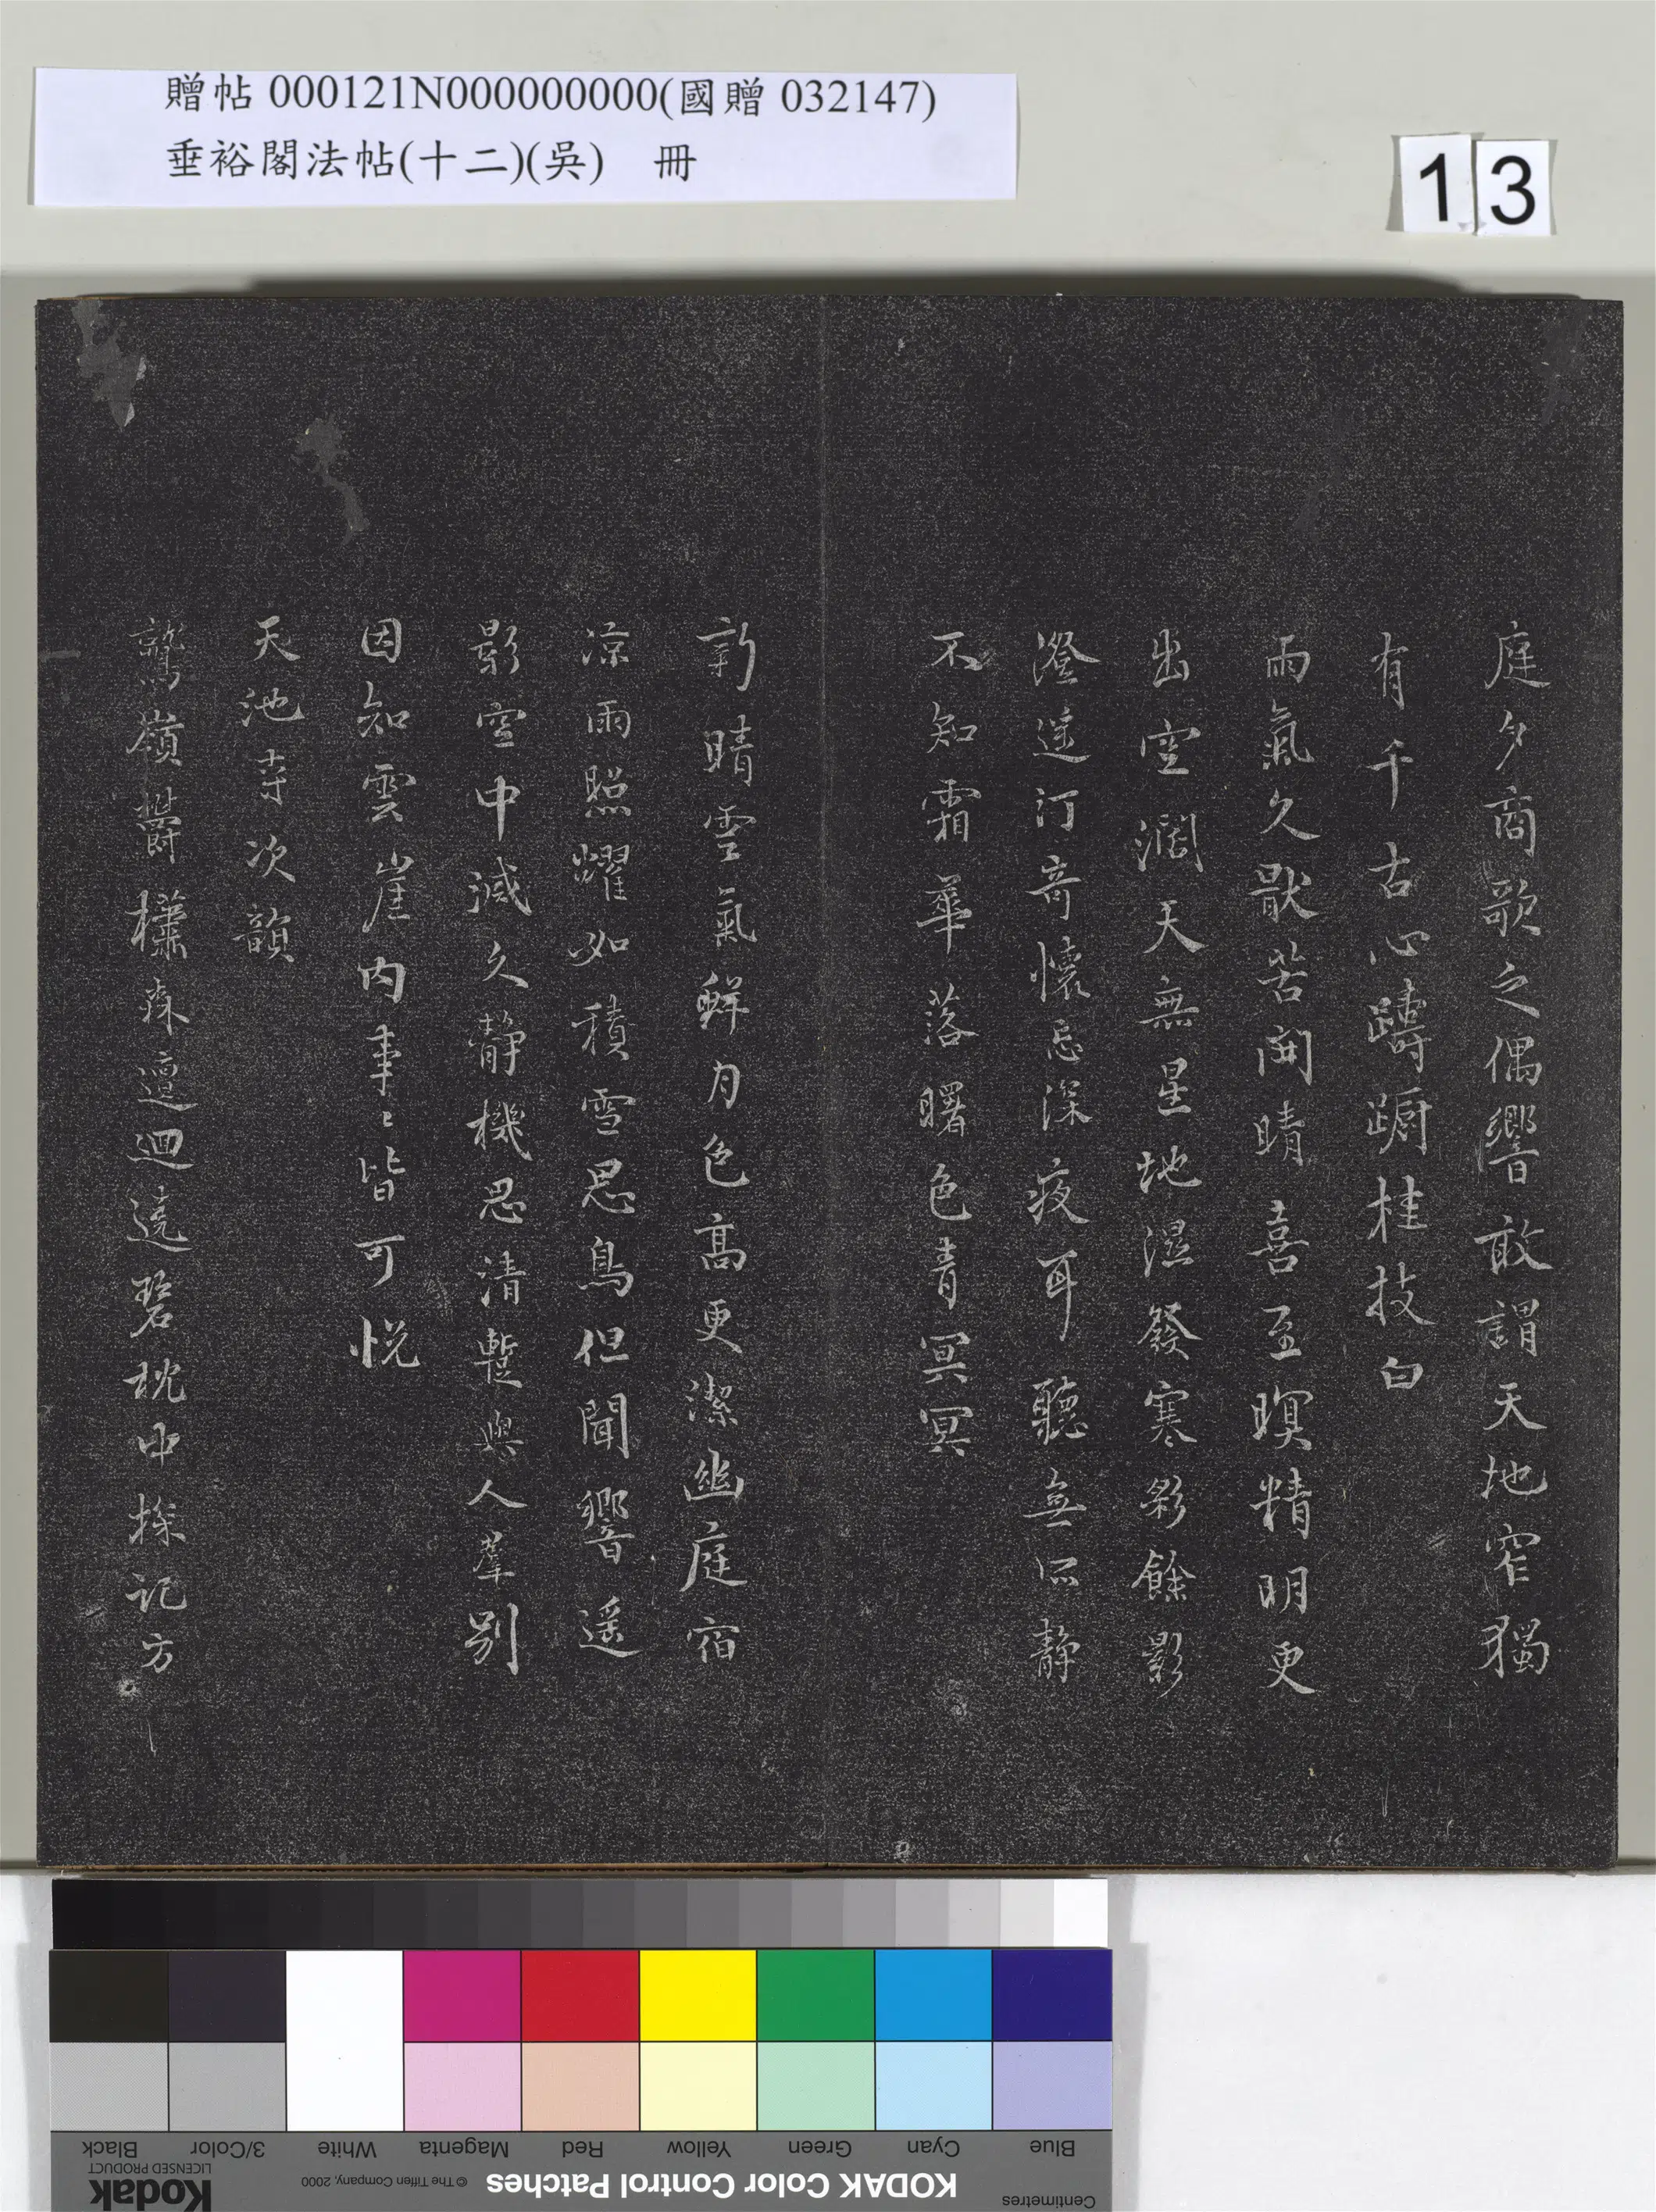 贈帖 000121N000000000(國贈 032147)
垂裕閣法帖(十二)(吳) 冊
13
庭夕商歌之偶響敢謂天地窄獨
有千古心躊躕桂技白
雨氣久厭苦開晴喜至暝精明更
出空濶天無星地濕發寒彩餘影
澄遥汀奇懷忘深夜耳聽無所静
不知霜華落曙色青冥冥
新晴雲氣鮮月色高更潔幽庭宿
凉雨照耀如積雪思鳥但聞響遥
影空中滅久静機思清蹔與人羣別
因知雲崖内事〻皆可悦
天池寺次韻
鷲嶺欝椹森邅迴遶碧枕中探記方
Black
3/Color
White
Magenta
Red
Yellow
Green
Cyan
Blue
Kodak
LICENSED PRODUCT
© The Tiffen Company, 2000
KODAK Color Control Patches
Centimetres